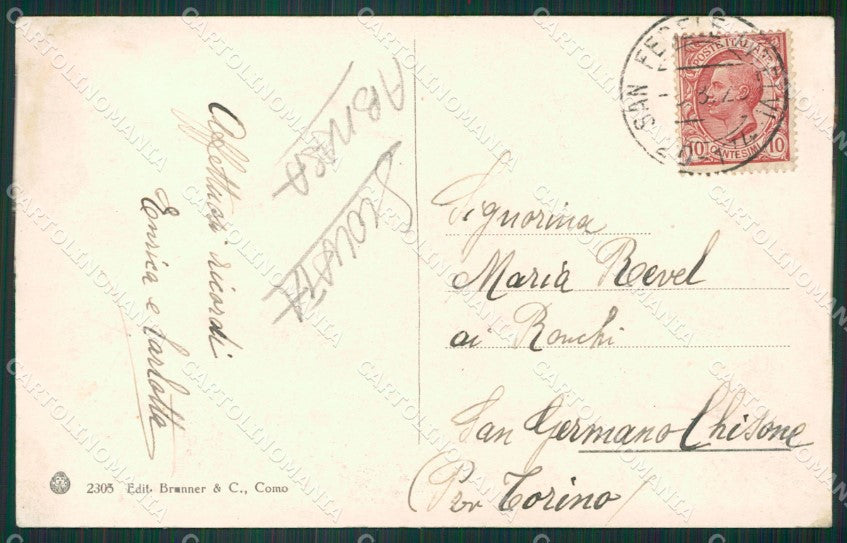 Affettuosi ricordi
Enrica e Carlotta
SAN FEDELE
POSTE ITALIANE
10 CENTESIMI 10
Signorina
Maria Revel
ai Ronchi
San Germano Chisone
(Per Torino)
2305 Edit. Brunner & C., Como
CARTOLINOMANIA